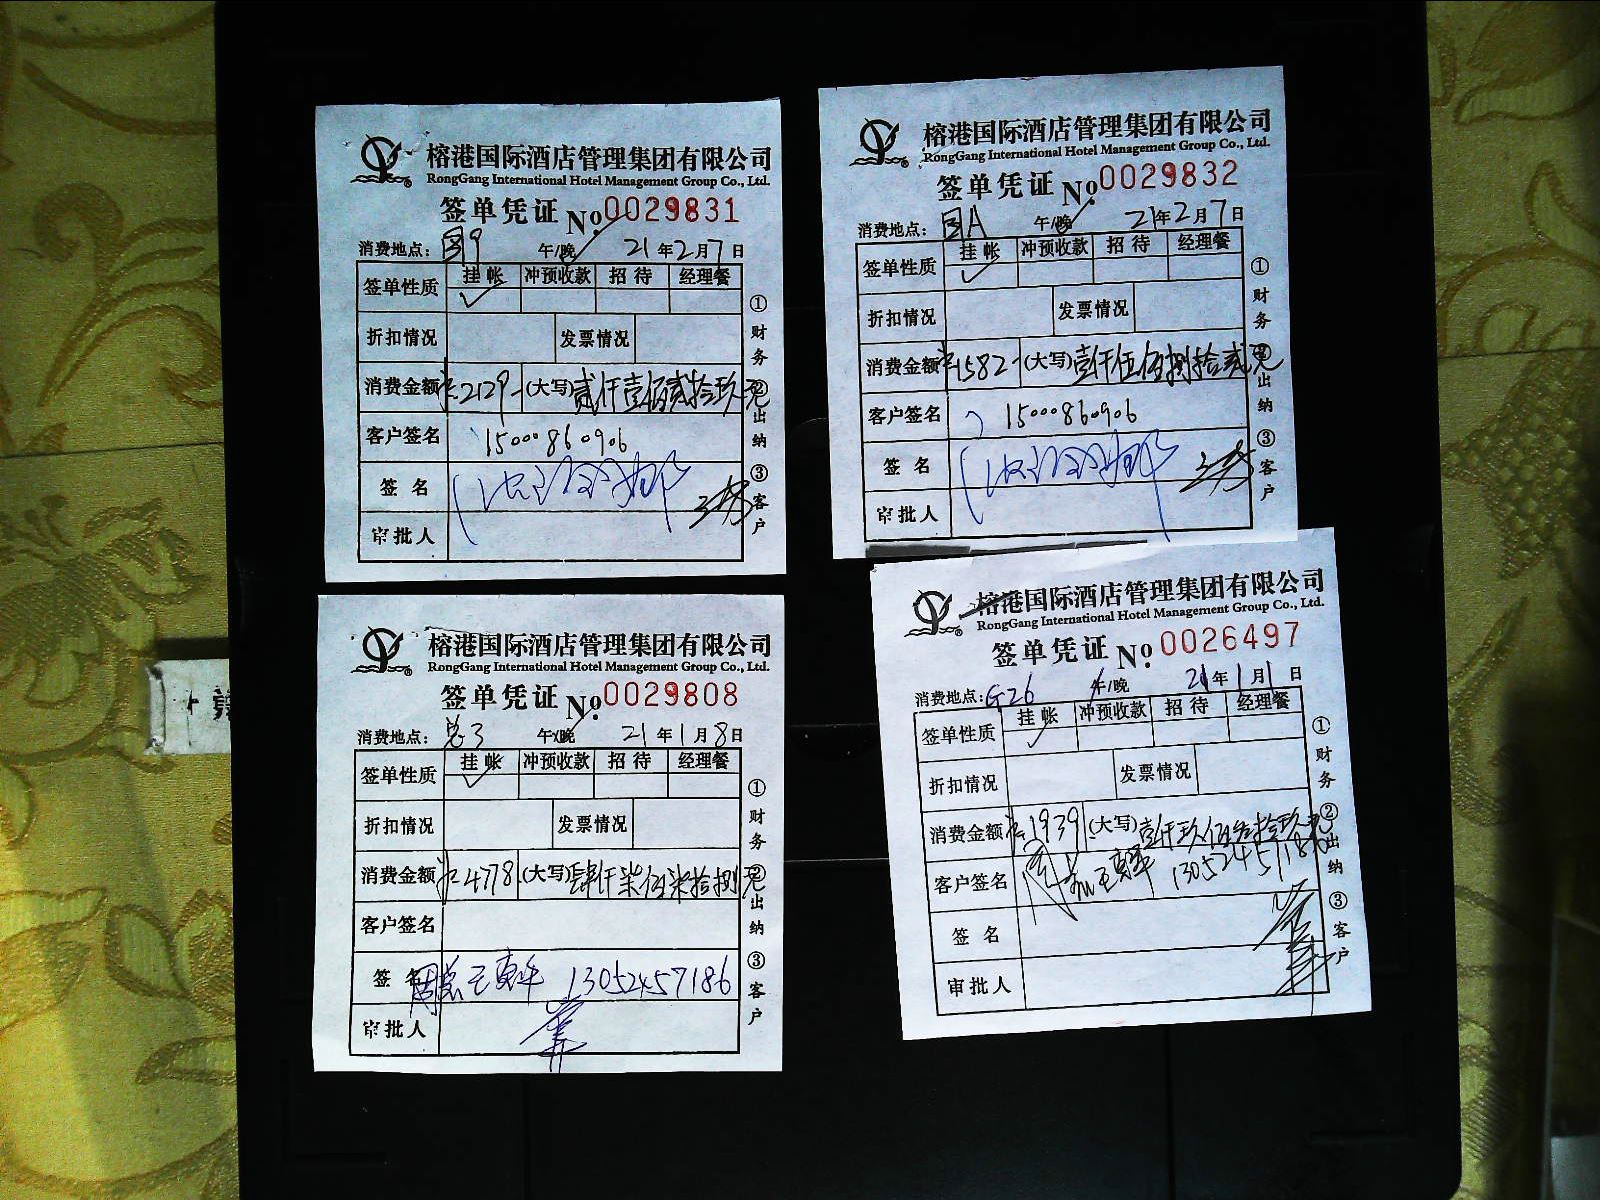 榕港国际酒店管理集团有限公司
RongGang International Hotel Management Group Co., Ltd.
签单凭证 No. 0029831
消费地点: 午/晚 21年2月7日
签单性质 挂帐 冲预收款 招待 经理餐
折扣情况 发票情况
消费金额 2129 (大写) 贰仟壹佰贰拾玖元
客户签名 15000860906
签名
审批人
①财务 ②出纳 ③客户
榕港国际酒店管理集团有限公司
RongGang International Hotel Management Group Co., Ltd.
签单凭证 No. 0029832
消费地点: 午/晚 21年2月7日
签单性质 挂帐 冲预收款 招待 经理餐
折扣情况 发票情况
消费金额 1582 (大写) 壹仟伍佰捌拾贰元
客户签名 15000860906
签名
审批人
①财务 ②出纳 ③客户
榕港国际酒店管理集团有限公司
RongGang International Hotel Management Group Co., Ltd.
签单凭证 No. 0029808
消费地点: 总3 午/晚 21年1月8日
签单性质 挂帐 冲预收款 招待 经理餐
折扣情况 发票情况
消费金额 4778 (大写) 肆仟柒佰柒拾捌元
客户签名
签名 13052457186
审批人
①财务 ②出纳 ③客户
榕港国际酒店管理集团有限公司
RongGang International Hotel Management Group Co., Ltd.
签单凭证 No. 0026497
消费地点: G26 午/晚 21年1月1日
签单性质 挂帐 冲预收款 招待 经理餐
折扣情况 发票情况
消费金额 1939 (大写) 壹仟玖佰叁拾玖元
客户签名
签名
审批人
①财务 ②出纳 ③客户